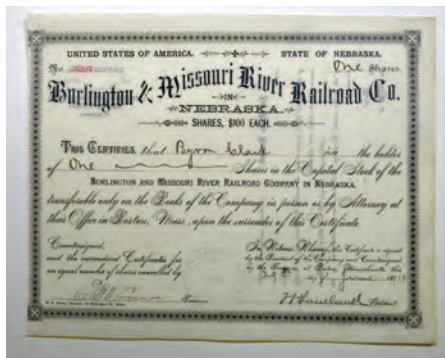 UNITED STATES OF AMERICA. STATE OF NEBRASKA.
No. One Shares
Burlington & Missouri River Railroad Co.
-IN-
NEBRASKA.
SHARES, $100 EACH.
THIS CERTIFIES, that Byron Clark is the holder
of One Shares in the Capital Stock of the
BURLINGTON AND MISSOURI RIVER RAILROAD COMPANY IN NEBRASKA,
transferable only on the Books of the Company in person or by Attorney at
their Office in Boston, Mass., upon the surrender of this Certificate.
Countersigned: In Witness Whereof, this Certificate is signed
and the surrendered Certificates for by the President of the Company and Countersigned
an equal number of shares cancelled by by the